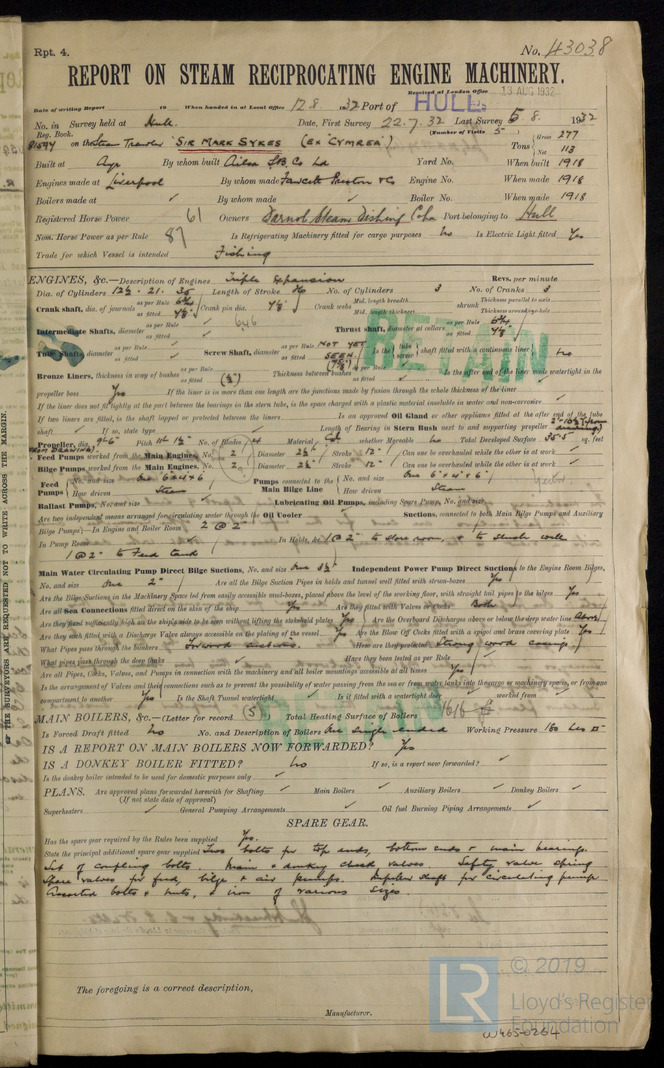 Rpt. 4. No. 43038
REPORT ON STEAM RECIPROCATING ENGINE MACHINERY.
Received at London Office 13 AUG 1932
Date of writing Report 19 When handed in at Local Office 12 8 1932 Port of HULL.
No. in Survey held at Hull. Date, First Survey 22.7.32 Last Survey 5 8 1932
Reg. Book. (Number of Visits 5)
on the Steam Trawler "SIR MARK SYKES" (EX "CYMREA") Tons Gross 277 Net 113
Built at Ayr By whom built Ailsa S.B. Co Ld Yard No. When built 1918
Engines made at Liverpool By whom made Fawcett Preston & Co Engine No. When made 1918
Boilers made at By whom made Boiler No. When made 1918
Registered Horse Power 61 Owners Steam Fishing Port belonging to Hull
Nom. Horse Power as per Rule 87 Is Refrigerating Machinery fitted for cargo purposes No Is Electric Light fitted Yes
Trade for which Vessel is intended Fishing
ENGINES, &c.—Description of Engines Triple Expansion Revs. per minute
Dia. of Cylinders 12½ . 21 . 35 Length of Stroke No. of Cylinders 3 No. of Cranks 3
Crank shaft, dia. of journals as per Rule as fitted Crank pin dia. Crank webs Mid. length breadth Mid. length thickness shrunk Thickness parallel to axis Thickness around eye-hole
Intermediate Shafts, diameter as per Rule as fitted Thrust shaft, diameter at collars as per Rule as fitted
RETAIN
Tube Shafts, diameter as per Rule as fitted Screw Shaft, diameter as per Rule NOT YET as fitted SEEN Is the tube screw shaft fitted with a continuous liner No
Bronze Liners, thickness in way of bushes as per Rule as fitted Thickness between bushes as per Rule as fitted Is the after end of the liner made watertight in the
propeller boss Yes If the liner is in more than one length are the junctions made by fusion through the whole thickness of the liner
If the liner does not fit tightly at the part between the bearings in the stern tube, is the space charged with a plastic material insoluble in water and non-corrosive
If two liners are fitted, is the shaft lapped or protected between the liners Is an approved Oil Gland or other appliance fitted at the after end of the tube
shaft If so, state type Length of Bearing in Stern Bush next to and supporting propeller
Propeller, dia. 9'-6" Pitch No. of Blades 4 Material whether Moveable No Total Developed Surface 35.5 sq. feet
Feed Pumps worked from the Main Engines, No. 2 Diameter Stroke 12" Can one be overhauled while the other is at work
Bilge Pumps worked from the Main Engines, No. 2 Diameter Stroke 12" Can one be overhauled while the other is at work
Feed Pumps No. and size one 6x4x6 How driven Steam Pumps connected to the Main Bilge Line No. and size one 6"x4"x6" How driven Steam
Ballast Pumps, No. and size Lubricating Oil Pumps, including Spare Pump, No. and size
Are two independent means arranged for circulating water through the Oil Cooler Suctions, connected to both Main Bilge Pumps and Auxiliary
Bilge Pumps:—In Engine and Boiler Room 2 @ 2"
In Pump Room In Holds, &c. 1 @ 2" to store room, & to slush well
1 @ 2" to Feed tank
Main Water Circulating Pump Direct Bilge Suctions, No. and size Independent Power Pump Direct Suctions to the Engine Room Bilges,
No. and size one 2" Are all the Bilge Suction Pipes in holds and tunnel well fitted with strum-boxes Yes
Are the Bilge Suctions in the Machinery Space led from easily accessible mud-boxes, placed above the level of the working floor, with straight tail pipes to the bilges Yes
Are all Sea Connections fitted direct on the skin of the ship Yes Are they fitted with Valves or Cocks Both
Are they fixed sufficiently high on the ship's side to be seen without lifting the stokehold plates Yes Are the Overboard Discharges above or below the deep water line Above
Are they each fitted with a Discharge Valve always accessible on the plating of the vessel Yes Are the Blow Off Cocks fitted with a spigot and brass covering plate Yes
What Pipes pass through the bunkers Forward suctions. How are they protected Strong wood casings.
What pipes pass through the deep tanks Have they been tested as per Rule
Are all Pipes, Cocks, Valves, and Pumps in connection with the machinery and all boiler mountings accessible at all times Yes
Is the arrangement of Valves and their connections such as to prevent the possibility of water passing from the sea or from water tanks into the cargo or machinery spaces, or from one
compartment to another Yes Is the Shaft Tunnel watertight Is it fitted with a watertight door worked from
MAIN BOILERS, &c.—(Letter for record (S)) Total Heating Surface of Boilers 1616
RETAIN
Is Forced Draft fitted No No. and Description of Boilers One single ended Working Pressure 180 Lbs
IS A REPORT ON MAIN BOILERS NOW FORWARDED? Yes
IS A DONKEY BOILER FITTED? No If so, is a report now forwarded?
Is the donkey boiler intended to be used for domestic purposes only
PLANS. Are approved plans forwarded herewith for Shafting Main Boilers Auxiliary Boilers Donkey Boilers
(If not state date of approval)
Superheaters General Pumping Arrangements Oil fuel Burning Piping Arrangements
SPARE GEAR.
Has the spare gear required by the Rules been supplied Yes.
State the principal additional spare gear supplied Two bolts for top ends, bottom ends & main bearings.
Set of coupling bolts. Main & donkey check valves. Safety valve spring
Spare valves for feed, bilge & air pumps. Impeller shaft for circulating pump
Assorted bolts & nuts, & iron of various sizes.
The foregoing is a correct description,
Manufacturer.
© 2019
LR Lloyd's Register
Foundation
W465-0264
OF THE SURVEYORS ARE REQUESTED NOT TO WRITE ACROSS THE MARGIN.